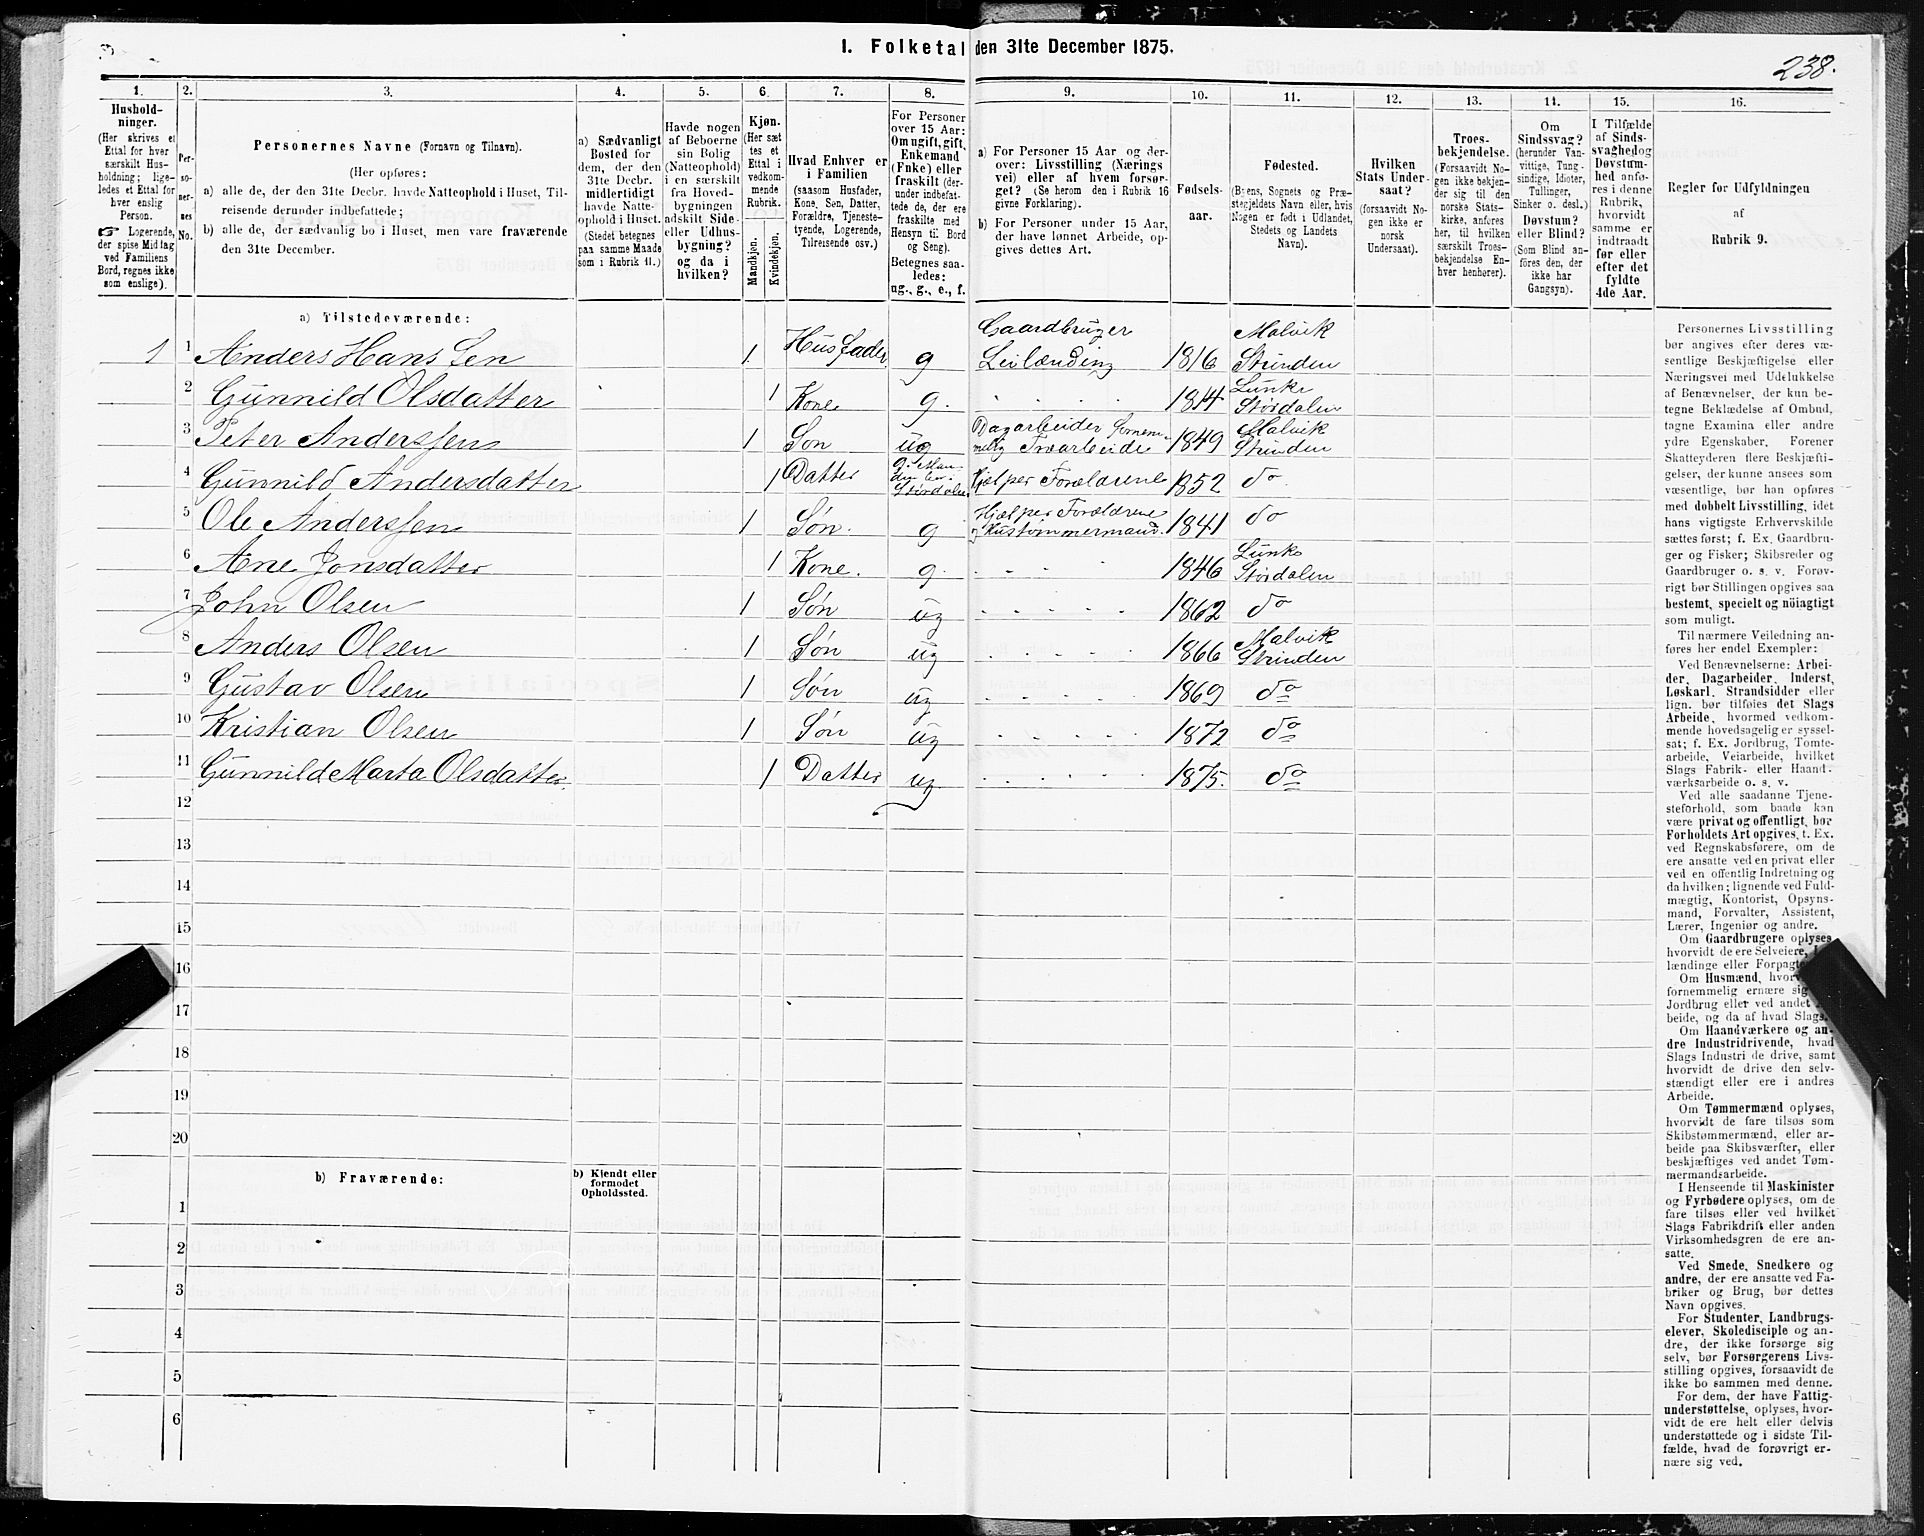 1. Folketal den 31te December 1875.
238.
1. 2. 3. 4. 5. 6. 7. 8. 9. 10. 11. 12. 13. 14. 15. 16.
Hushold-
ninger.
(Her skrives et
Ettal for hver
særskilt Hus-
holdning; lige-
ledes et Ettal for
hver enslig
Person.
☞ Logerende,
der spise Middag
ved Familiens
Bord, regnes ikke
som enslige).
Per-
so-
ner-
nes
No.
Personernes Navne (Fornavn og Tilnavn).
(Her opføres:
a) alle de, der den 31te Decbr. havde Natteophold i Huset, Til-
reisende derunder indbefattede;
b) alle de, der sædvanlig bo i Huset, men vare fraværende
den 31te December.
a) Sædvanligt
Bosted for
dem, der den
31te Decbr.
midlertidigt
havde Natte-
ophold i Huset.
(Stedet betegnes
paa samme Maade
som i Rubrik 11.)
Havde nogen
af Beboerne
sin Bolig
(Natteophold)
i en særskilt
fra Hoved-
bygningen
adskilt Side-
eller Udhus-
bygning?
og da i
hvilken?
Kjøn.
(Her sæt-
tes et
Ettal i
vedkom-
mende
Rubrik.
Mandkjøn.
Kvindekjøn.
Hvad Enhver er
i Familien
(saasom Husfader,
Kone, Søn, Datter,
Forældre, Tjeneste-
tyende, Logerende,
Tilreisende osv.)
For Personer
over 15 Aar:
Om ugift, gift,
Enkemand
(Enke) eller
fraskilt (der-
under indbefat-
tede de, der ere
fraskilte med
Hensyn til Bord
og Seng).
Betegnes saa-
ledes:
ug., g., e., f.
a) For Personer 15 Aar og der-
over: Livsstilling (Nærings
vei) eller af hvem forsør-
get? (Se herom den i Rubrik 16
givne Forklaring).
b) For Personer under 15 Aar,
der have lønnet Arbeide, op-
gives dettes Art.
Fødsels-
aar.
Fødested.
(Byens, Sognets og Præ-
stegjeldets Navn eller, hvis
Nogen er født i Udlandet,
Stedets og Landets
Navn).
Hvilken
Stats Under-
saat?
(forsaavidt No-
gen ikke er
norsk
Undersaat).
Troes-
bekjendelse.
(Forsaavidt No-
gen ikke bekjen-
der sig til den
norske Stats-
kirke, anføres
her, til hvilken
særskilt Troes-
bekjendelse En-
hver henhører).
Om
Sindssvag?
(herunder Van-
vittige, Tung-
sindige, Idioter,
Tullinger,
Sinker o. desl.)
Døvstum?
eller Blind?
(Som Blind an-
føres den, der
ikke har
Gangsyn).
I Tilfælde
af Sinds-
svaghed og
Døvstum-
hed anfø-
res i denne
Rubrik,
hvorvidt
samme er
indtraadt
før eller
efter det
fyldte
4de Aar.
Regler for Udfyldningen
af
Rubrik 9.
a) Tilstedeværende:
1 1 Anders Hans Sen 1. Husfader g Gaardbruger Leilænding 1816 Malvik Strinden
2 Gunnild Olsdatter 1 Kone g. 1814 Lunke Størdalen
3 Peter Anderssen 1 Søn ug Dagarbeider fornem- melig Træarbeide 1849 Malvik Strinden
4 Gunnild Andersdatter 1 Datter Størdalen Hjelper Forældrene 1852 do
5 Ole Anderssen 1 Søn. g Hjælper Forældrene og Hustømmermand. 1841 do
6 Ane Jonsdatter 1 Kone. g. 1846 Lunke Størdalen
7 John Olsen 1 Søn ug 1862 do
8 Anders Olsen 1 Søn ug 1866 Malvik Strinden
9 Gustav Olsen 1 Søn ug 1869 do
10 Kristian Olsen 1 Søn ug 1872 do
11 Gunnild Marta Olsdatter. 1 Datter ug 1875. do
12
13
14
15
16
17
18
19
20
b) Fraværende:
b) Kjendt eller
formodet
Opholdssted.
1
2
3
4
5
6
Personernes Livsstilling
bør angives efter deres væ-
sentlige Beskjæftigelse eller
Næringsvei med Udelukkelse
af Benævnelser, der kun be-
tegne Beklædelse af Ombud,
tagne Examina eller andre
ydre Egenskaber. Forener
Skatteyderen flere Beskjæfti-
gelser, der kunne ansees som
væsentlige, bør han opføres
med dobbelt Livsstilling, idet
hans vigtigste Erhvervskilde
sættes først; f. Ex. Gaardbru-
ger og Fisker; Skibsreder og
Gaardbruger o. s. v. Forøv-
rigt bør Stillingen opgives saa
bestemt, specielt og nöiagtigt
som muligt.
Til nærmere Veiledning an-
føres her endel Exempler:
Ved Benævnelserne: Arbei-
der, Dagarbeider, Inderst,
Løskarl, Strandsidder eller
lign. bør tilføies det Slags
Arbeide, hvormed vedkom-
mende hovedsagelig er syssel-
sat; f. Ex. Jordbrug, Tomte-
arbeide, Veiarbeide, hvilket
Slags Fabrik- eller Haand-
værksarbeide o. s. v.
Ved alle saadanne Tjene-
steforhold, som baade kan
være privat og offentligt, bør
Forholdets Art opgives, t. Ex.
ved Regnskabsførere, om de
ere ansatte ved en privat eller
ved en offentlig Indretning og
da hvilken; lignende ved Fuld-
mægtig, Kontorist, Opsyns-
mand, Forvalter, Assistent,
Lærer, Ingeniør og andre.
Om Gaardbrugere oplyses,
hvorvidt de ere Selveiere,
lændinge eller
Om Husmænd,
fornemmelig ernære sig
Jordbrug eller ved andet
beide, og da af hvad Slags.
Om Haandværkere og an-
dre Industridrivende, hvad
Slags Industri de drive, samt
hvorvidt de drive den selv-
stændigt eller ere i andres
Arbeide.
Om Tømmermænd oplyses,
hvorvidt de fare tilsøs som
Skibstømmermænd, eller ar-
beide paa Skibsværfter, eller
beskjæftiges ved andet Tøm-
mermandsarbeide.
I Henseende til Maskinister
og Fyrbødere oplyses, om de
fare tilsøs eller ved hvilket
Slags Fabrikdrift eller anden
Virksomhedsgren de ere an-
satte.
Ved Smede, Snedkere og
andre, der ere ansatte ved Fa-
briker og Brug, bør dettes
Navn opgives.
For Studenter, Landbrugs-
elever, Skoledisciple og an-
dre, der ikke forsørge sig
selv, bør Forsørgerens Livs-
stilling opgives, forsaavidt de
ikke bo sammen med denne.
For dem, der have Fattig-
understøttelse, oplyses, hvor-
vidt de ere helt eller delvis
understøttede og i sidste Til-
fælde, hvad de forøvrigt er-
nære sig ved.